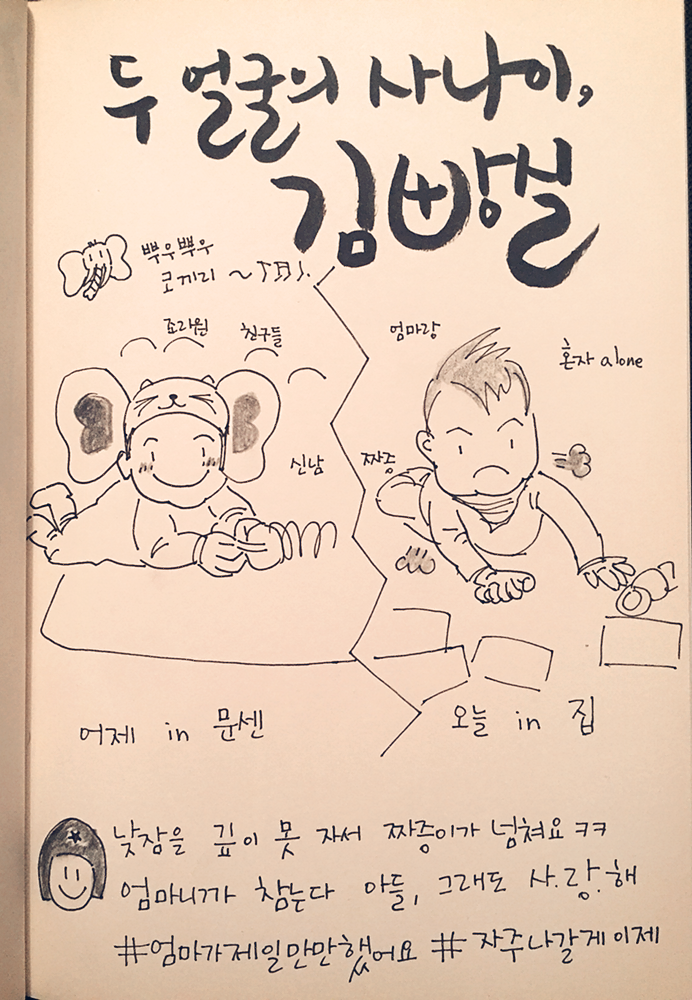 두 얼굴의 사나이,
김빵실
뿌우뿌우
코끼리 ~
조리원 친구들
신남
엄마랑
혼자 alone
짜증
어제 in 문센
오늘 in 집
낮잠을 깊이 못 자서 짜증이가 넘쳐요 ㅋㅋ
엄마니까 참는다 아들, 그래도 사.랑.해
#엄마가제일만만했어요 #자주나갈게이제